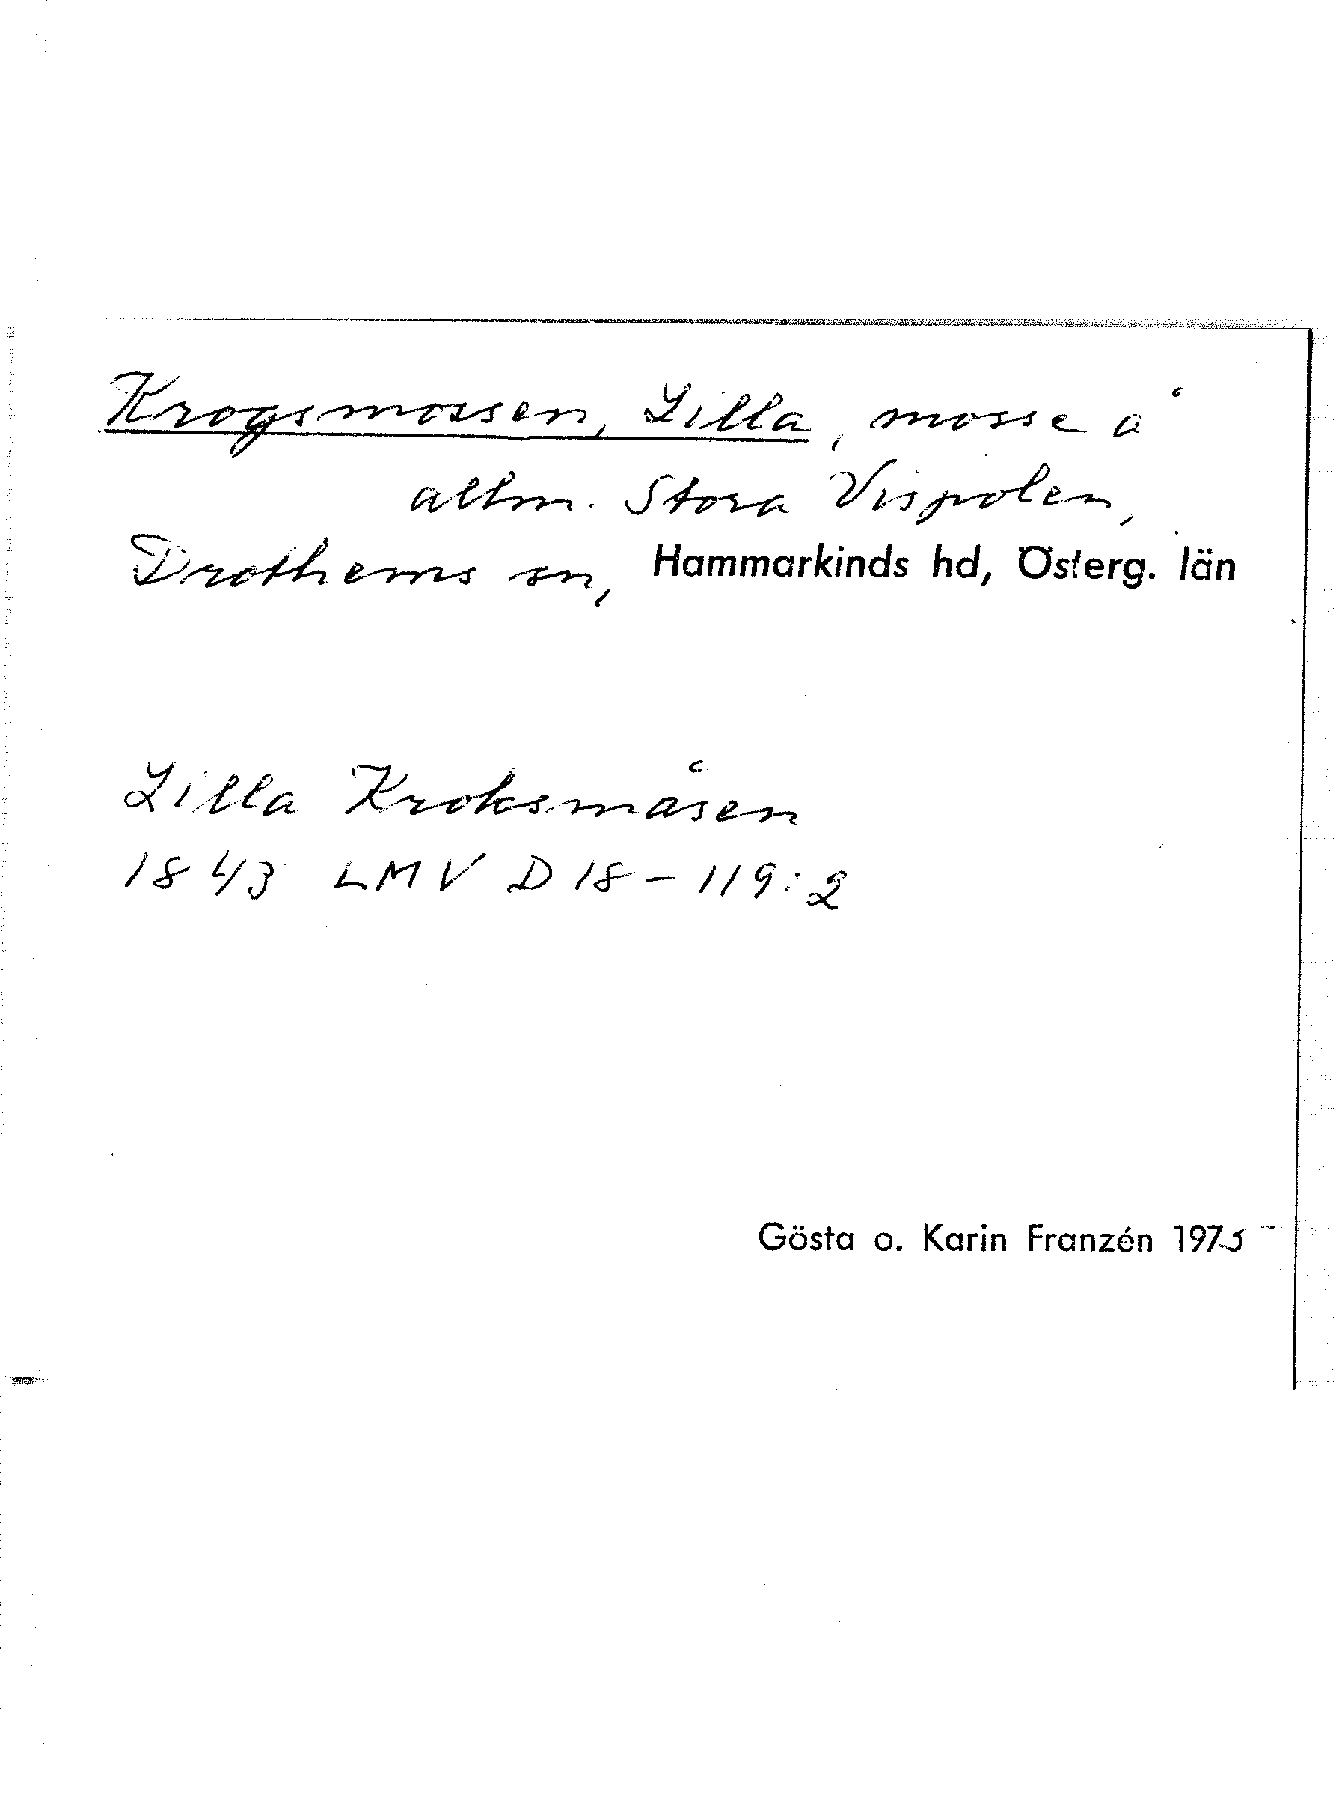 Krogsmossen, Lilla, mosse å
allm. Stora Vispolen,
Drothems sn, Hammarkinds hd, Österg. län
Lilla Kroksmåsen
1843 LMV D 18-119:2
Gösta o. Karin Franzén 1975